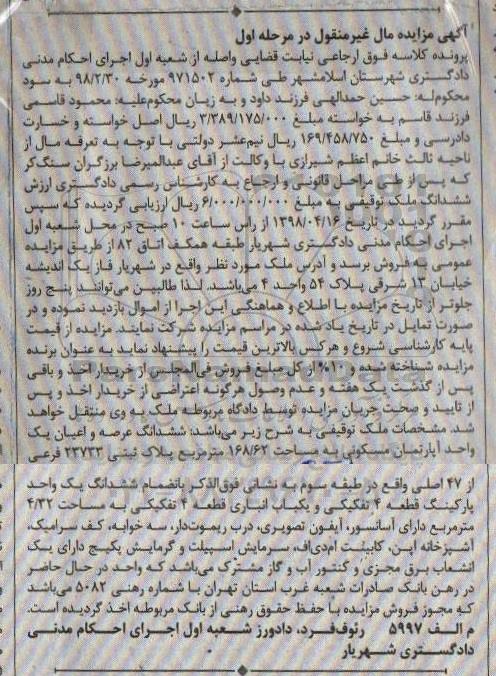 آگهی مزایده مال غیرمنقول در مرحله اول
پرونده کلاسه فوق ارجاعی نیابت قضایی واصله از شعبه اول اجرای احکام مدنی
دادگستری شهرستان اسلامشهر طی شماره ۹۷۱۵۰۲ مورخه ۹۸/۲/۳۰ به سود
محکوم‌له: حسین حمدالهی فرزند داود و به زیان محکوم‌علیه: محمود قاسمی
فرزند قاسم به خواسته مبلغ ۳/۳۸۹/۱۷۵/۰۰۰ ریال اصل خواسته و خسارت
دادرسی و مبلغ ۱۶۹/۴۵۸/۷۵۰ ریال نیم‌عشر دولتی با توجه به تعرفه مال از
ناحیه ثالث خانم اعظم شیرازی با وکالت از آقای عبدالمیرضا برزگران سنگ‌کر
که پس از طی مراحل قانونی و ارجاع به کارشناس رسمی دادگستری ارزش
ششدانگ ملک توقیفی به مبلغ ۶/۰۰۰/۰۰۰/۰۰۰ ریال ارزیابی گردیده که سپس
مقرر گردید در تاریخ ۱۳۹۸/۰۴/۱۶ از راس ساعت ۱۰ صبح در محل شعبه اول
اجرای احکام مدنی دادگستری شهریار طبقه همکف اتاق ۸۲ از طریق مزایده
عمومی به فروش برسد و آدرس ملک مورد نظر واقع در شهریار فاز یک اندیشه
خیابان ۱۳ شرقی پلاک ۵۴ واحد ۴ می‌باشد، لذا طالبین می‌توانند پنج روز
جلوتر از تاریخ مزایده با اطلاع و هماهنگی این اجرا از اموال بازدید نموده و در
صورت تمایل در تاریخ یاد شده در مراسم مزایده شرکت نمایند. مزایده از قیمت
پایه کارشناسی شروع و هرکس بالاترین قیمت را پیشنهاد نماید به عنوان برنده
مزایده شناخته شده و ۱۰% از کل مبلغ فروش فی‌المجلس از خریدار اخذ و باقی
پس از گذشت یک هفته و عدم وصول هرگونه اعتراضی از خریدار اخذ و پس
از تایید و صحت جریان مزایده توسط دادگاه مربوطه ملک به وی منتقل خواهد
شد. مشخصات ملک توقیفی به شرح زیر می‌باشد: ششدانگ عرصه و اعیان یک
واحد آپارتمان مسکونی به مساحت ۱۶۸/۶۲ مترمربع پلاک ثبتی ۲۳۷۳۳ فرعی
از ۴۷ اصلی واقع در طبقه سوم به نشانی فوق‌الذکر بانضمام ششدانگ یک واحد
پارکینگ قطعه ۴ تفکیکی و یکباب انباری قطعه ۴ تفکیکی به مساحت ۴/۳۲
مترمربع دارای آسانسور، آیفون تصویری، درب ریموت‌دار، سه خوابه، کف سرامیک،
آشپزخانه اپن، کابینت ام‌دی‌اف، سرمایش اسپیلت و گرمایش پکیج دارای یک
انشعاب برق مجزی و کنتور آب و گاز مشترک می‌باشد که واحد در حال حاضر
در رهن بانک صادرات شعبه غرب استان تهران با شماره رهنی ۵۰۸۲ می‌باشد
که مجوز فروش مزایده با حفظ حقوق رهنی از بانک مربوطه اخذ گردیده است.
م الف ۵۹۹۷ رئوف‌فرد، دادورز شعبه اول اجرای احکام مدنی
دادگستری شهریار